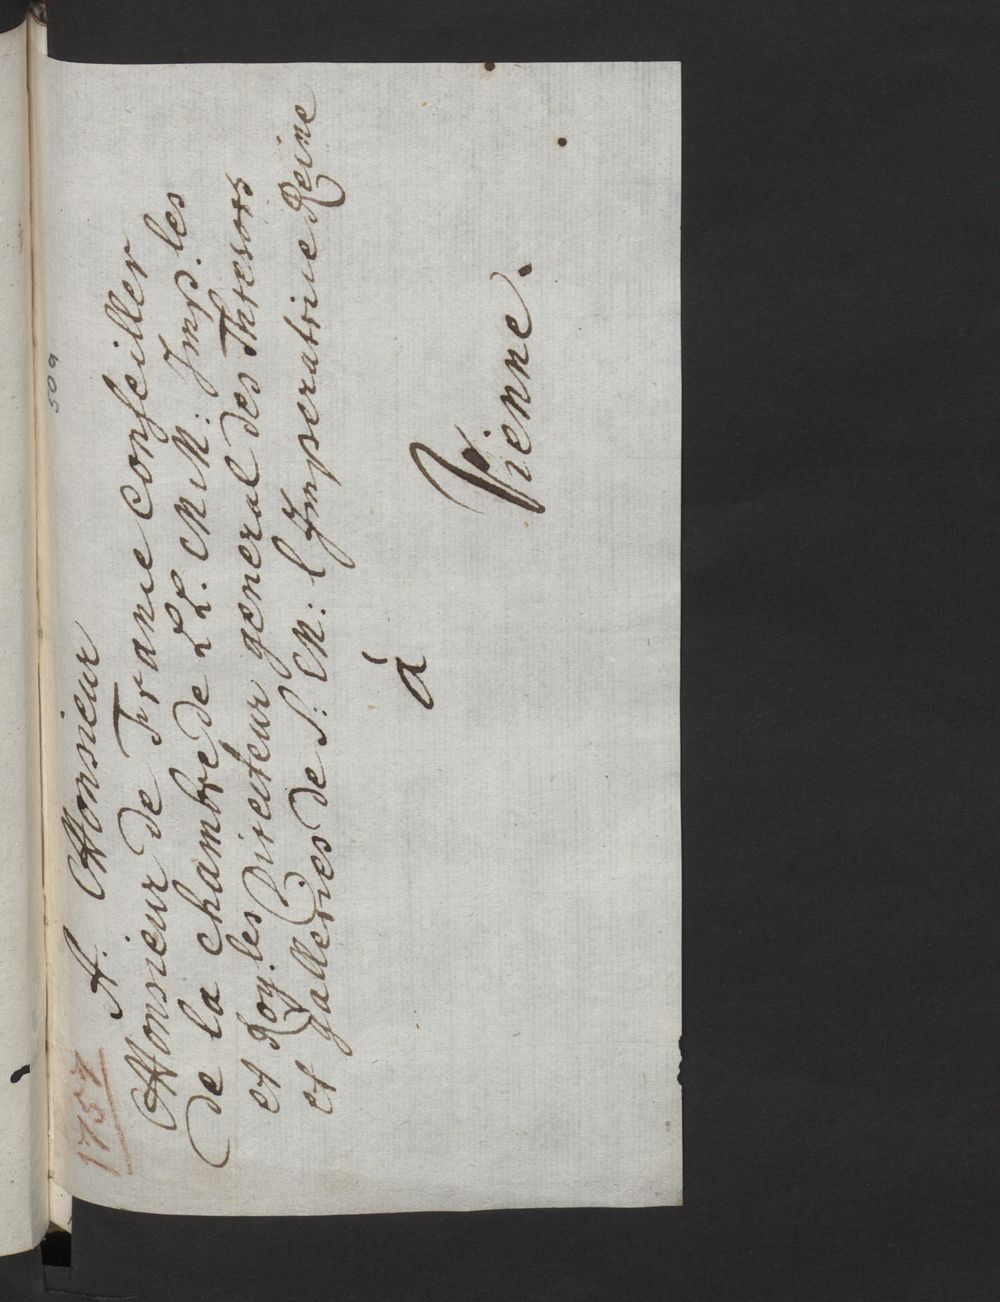 1757
50a
A. Monsieur
Monsieur de France Conseiller
de la chambre de LL. MM: Imp. les
et Roy. les Directeur general des Thresors
et Galleries de S: M: l Imperatrice Reine
à
Vienne.